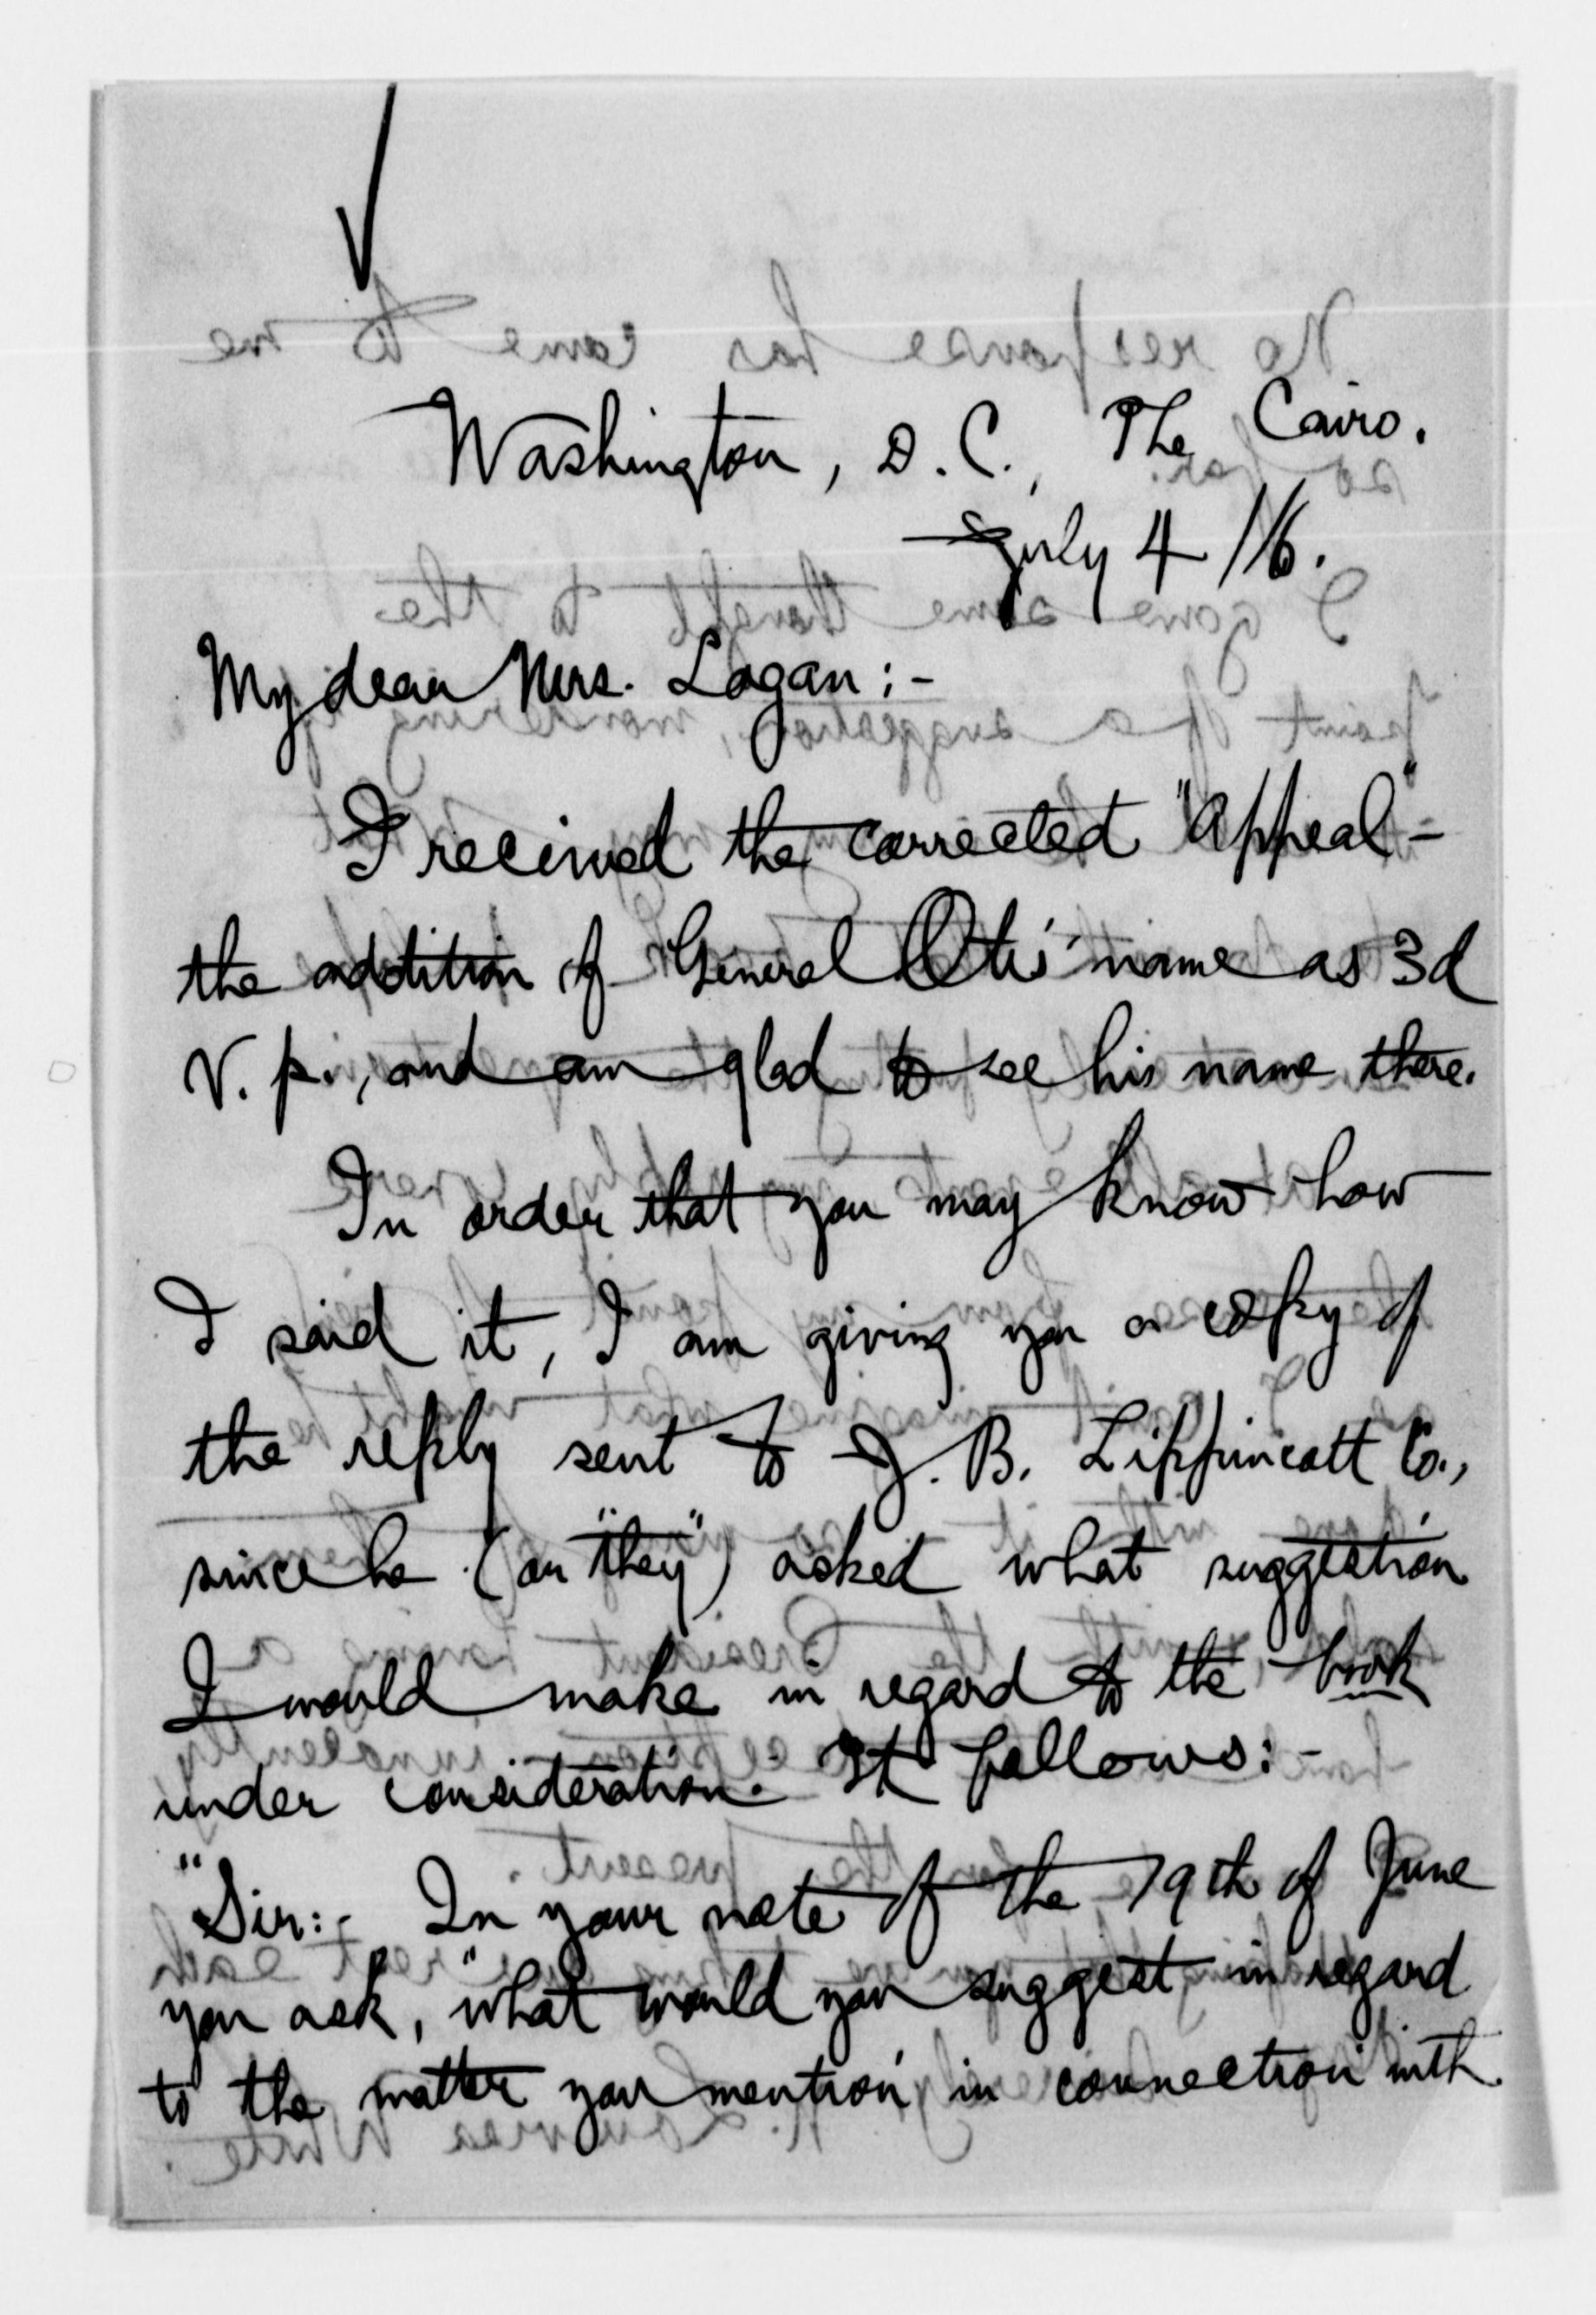 Washington, D.C., The Cairo.
July 4/16.
My dear Mrs. Logan:-
I received the corrected "Appeal"-
the addition of General Otis' name as 3d
V. p., and am glad to see his name there.
In order that you may know how
I said it, I am giving you a copy of
the reply sent to J. B. Lippincott Co.,
since he (or "they") asked what suggestion
I would make in regard to the book
under consideration. It follows:-
"Sir:- In your note of the 19th of June
you ask, "what would you suggest in regard
to the matter you mention in connection with